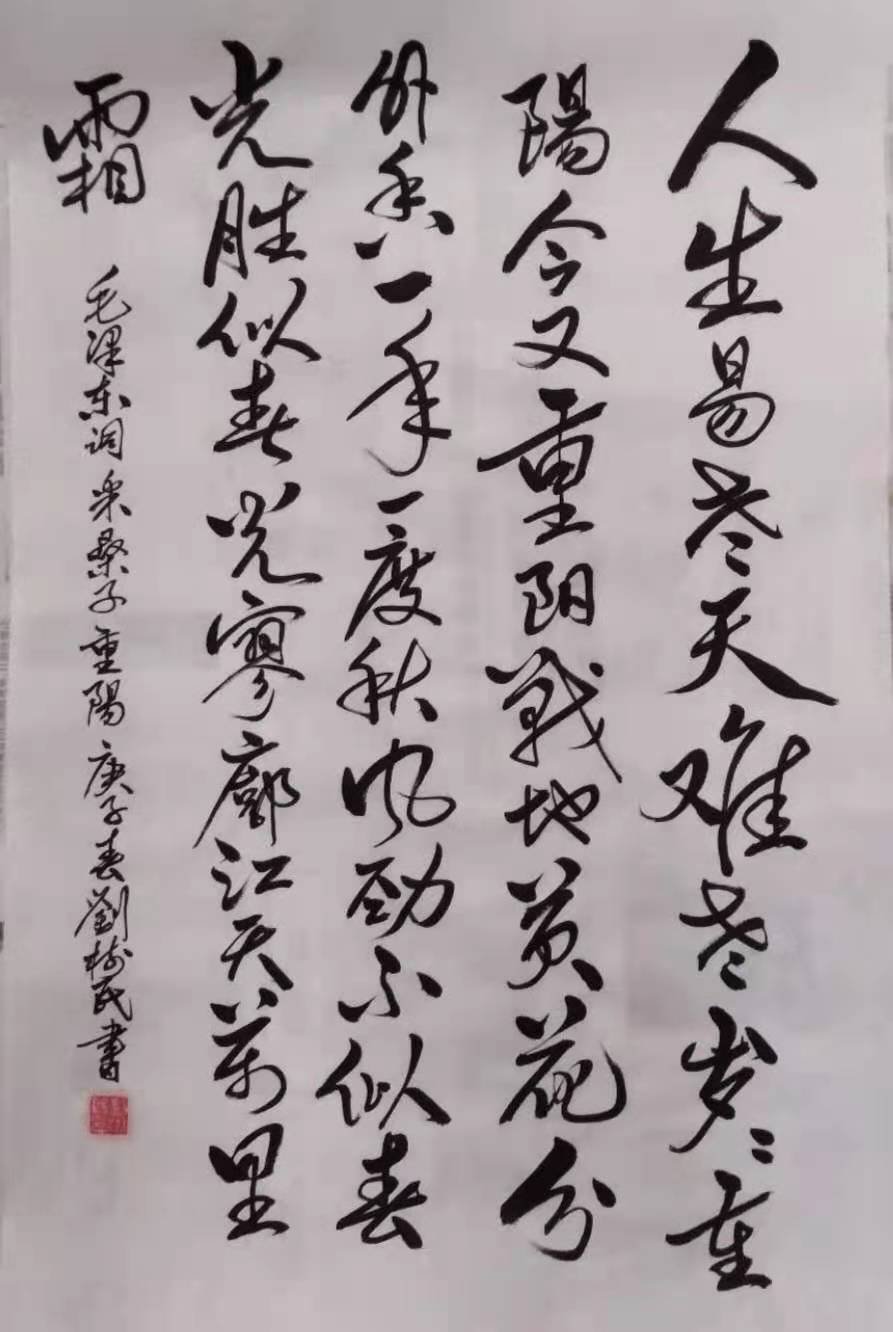 人生易老天难老岁〻重
陽今又重阳戰地黄花分
外香一年一度秋风劲不似春
光胜似春光寥廓江天萬里
霜
毛泽东词采桑子重陽庚子春劉树民書